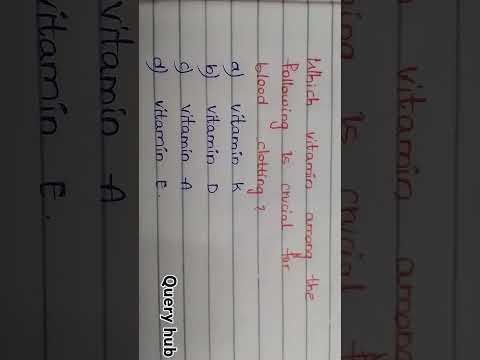 vitamin among
ing is crucial
Which vitamin among the
Following is crucial for
blood clotting?
a) vitamin K
b) vitamin D
c) vitamin A
d) vitamin E.
vitamin A
vitamin E.
Query hub